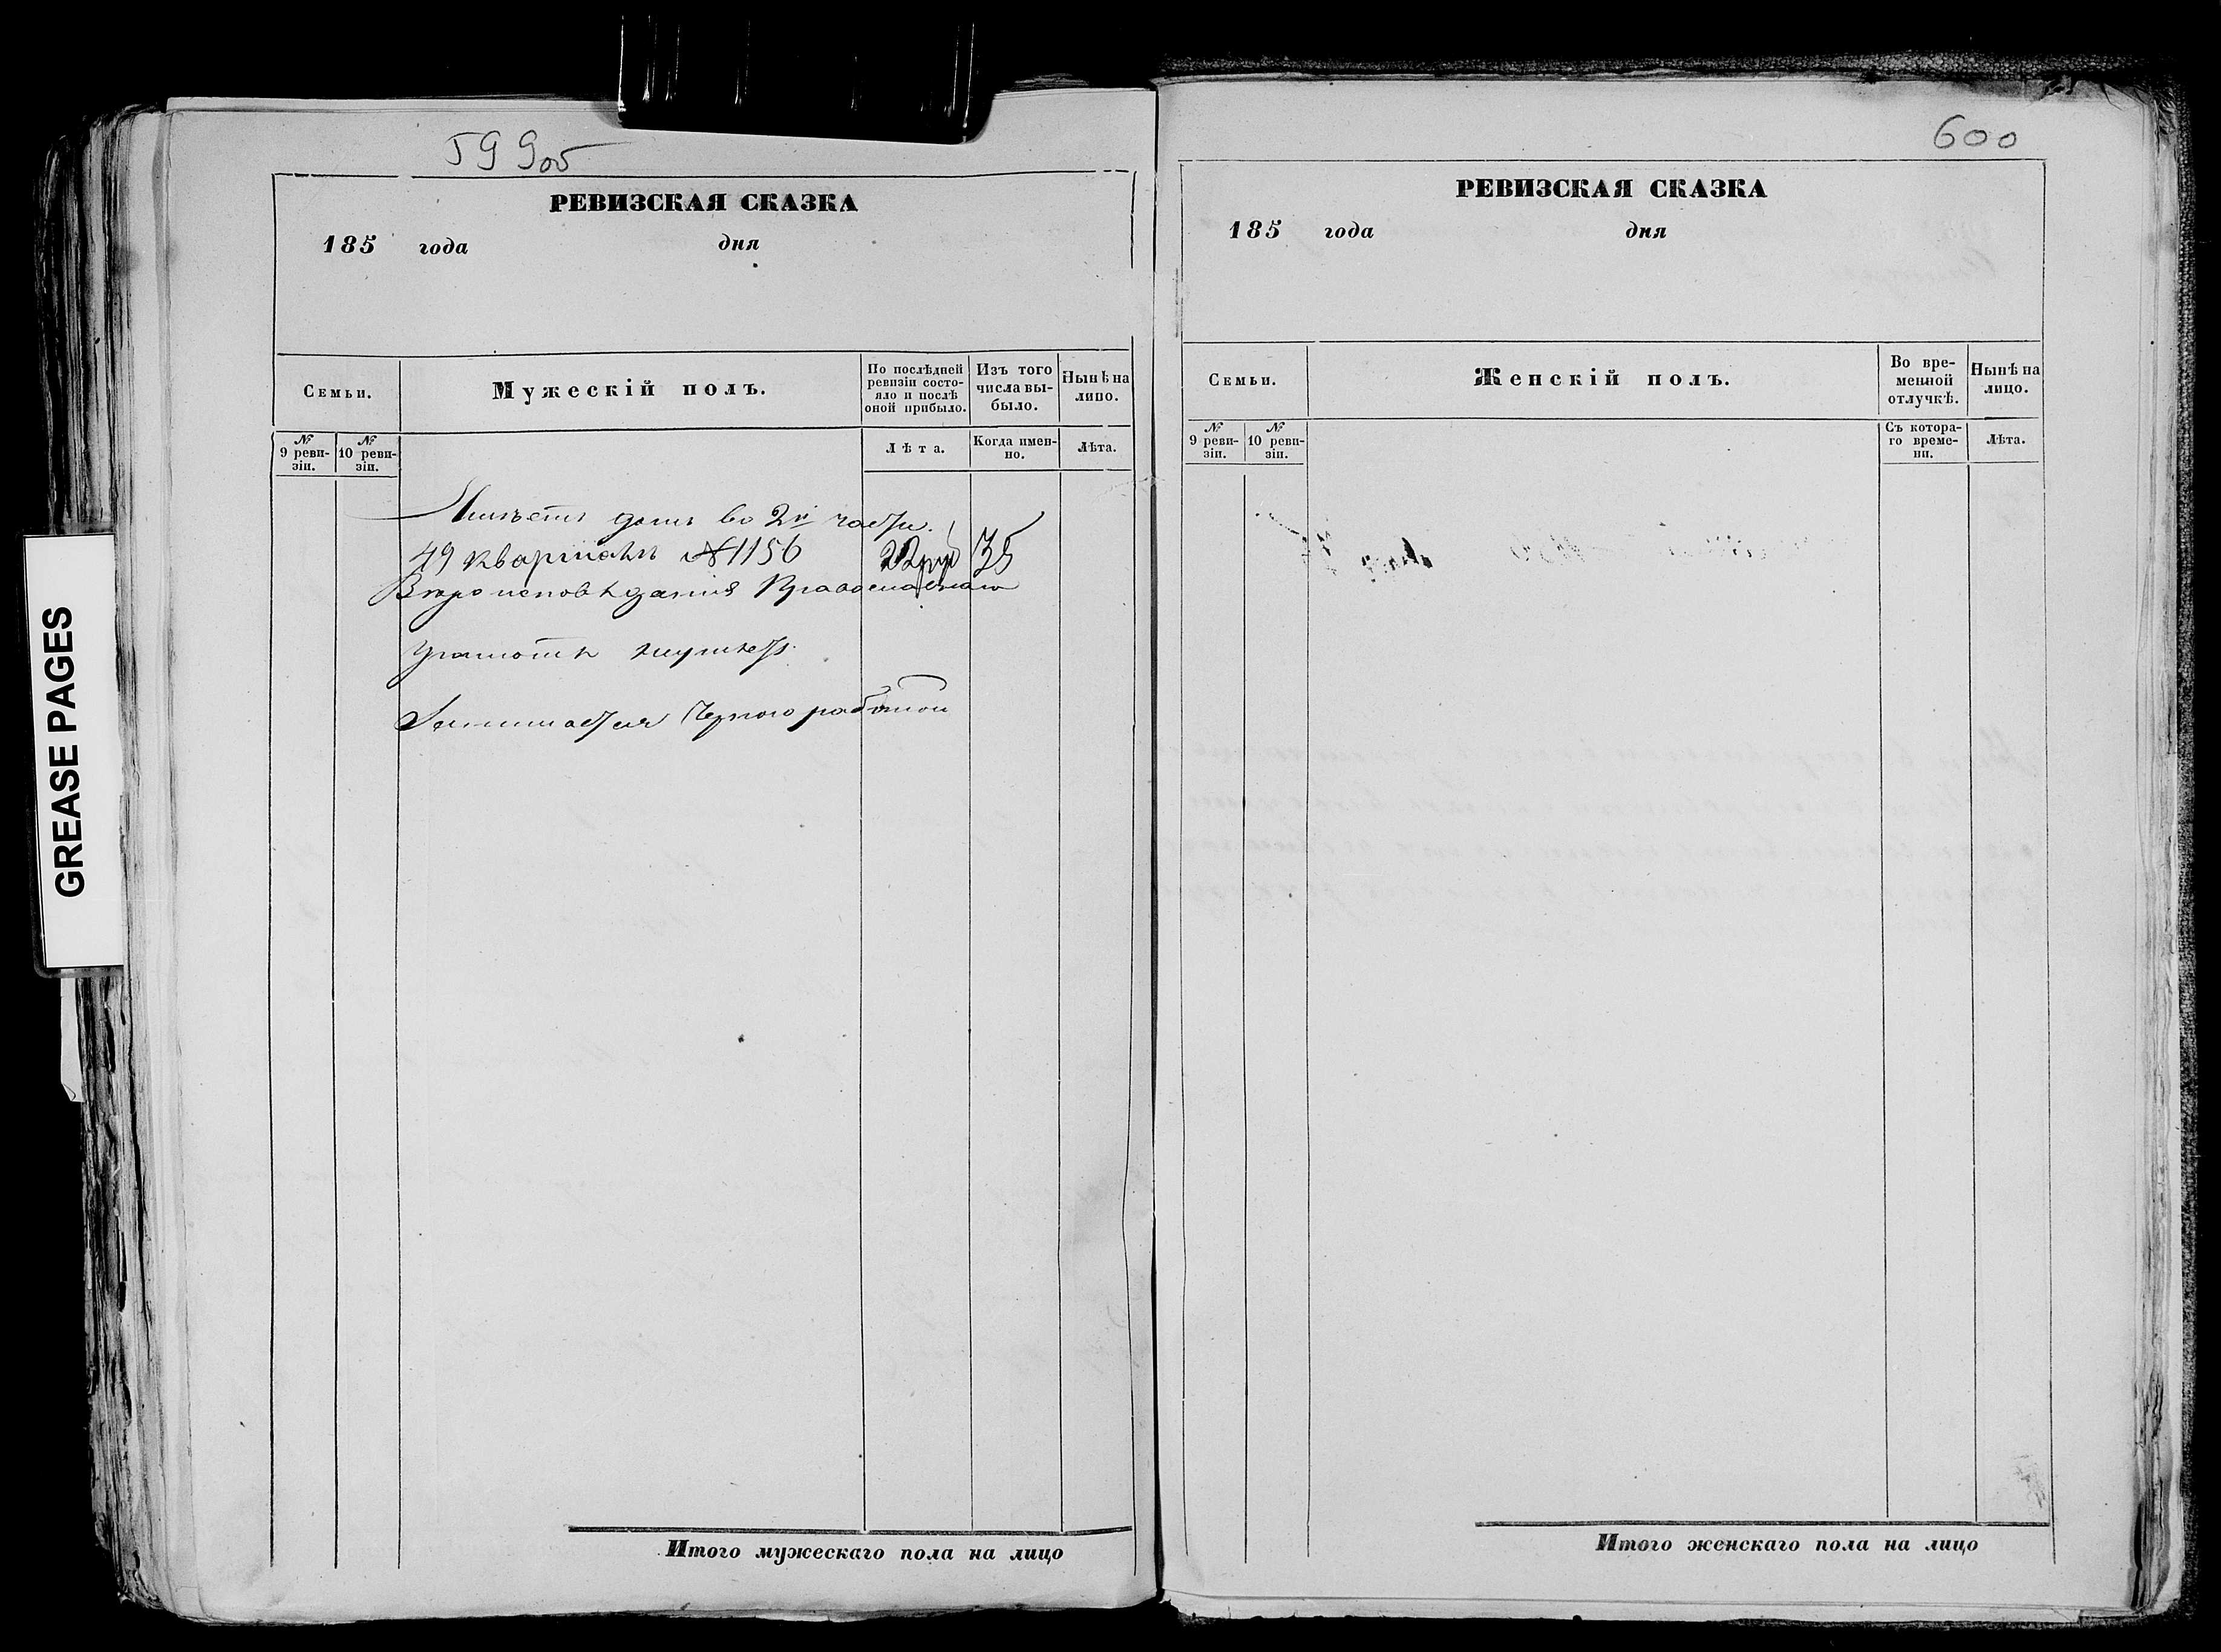 599об
РЕВИЗСКАЯ СКАЗКА
185 года дня
Семьи.
Мужескій полъ.
По послѣдней ревизіи состояло и послѣ оной прибыло.
Изъ того числа выбыло.
Нынѣ на лицо.
№ 9 ревизіи.
№ 10 ревизіи.
Лѣта.
Когда именно.
Лѣта.
Имѣетъ домъ во 2й части
49 кварталѣ №1156 22 руб 35
Вѣроисповѣданія Православнаго
Грамотѣ неумѣетъ
Занимается Черною работою
Итого мужескаго пола на лицо
600
РЕВИЗСКАЯ СКАЗКА
185 года дня
Семьи.
Женскій полъ.
Во временной отлучкѣ.
Нынѣ на лицо.
№ 9 ревизіи.
№ 10 ревизіи.
Съ котораго времени.
Лѣта.
Итого женскаго пола на лицо
GREASE PAGES